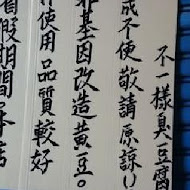 不一樣臭豆
成不便敬請原諒
非基因改造黃豆。
使用品質較好
假期間